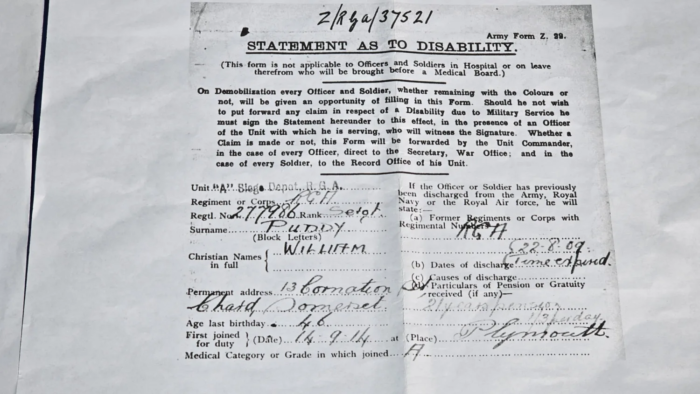 Z/Rga/37521
Army Form Z. 22.
STATEMENT AS TO DISABILITY.
(This form is not applicable to Officers and Soldiers in Hospital or on leave
therefrom who will be brought before a Medical Board.)
On Demobilization every Officer and Soldier, whether remaining with the Colours or
not, will be given an opportunity of filling in this Form. Should he not wish
to put forward any claim in respect of a Disability due to Military Service he
must sign the Statement hereunder to this effect, in the presence of an Officer
of the Unit with which he is serving, who will witness the Signature. Whether a
Claim is made or not, this Form will be forwarded by the Unit Commander,
in the case of every Officer, direct to the Secretary, War Office; and in the
case of every Soldier, to the Record Office of his Unit.
Unit "A" Siege Depot, R.G.A.
Regiment or Corps RGA
Regtl. No. 277986 Rank Sergt.
Surname PUDDY
(Block Letters)
Christian Names in full WILLIAM
Permanent address 13 Cornation
Chard Somerset
Age last birthday 46
First joined for duty (Date) 14.9.14 at (Place) Plymouth.
Medical Category or Grade in which joined A
If the Officer or Soldier has previously
been discharged from the Army, Royal
Navy or the Royal Air force, he will
state:—
(a) Former Regiments or Corps with
Regimental Numbers RGA
22-8-09.
(b) Dates of discharge Time expired.
(c) Causes of discharge
(d) Particulars of Pension or Gratuity
received (if any)—
21 years